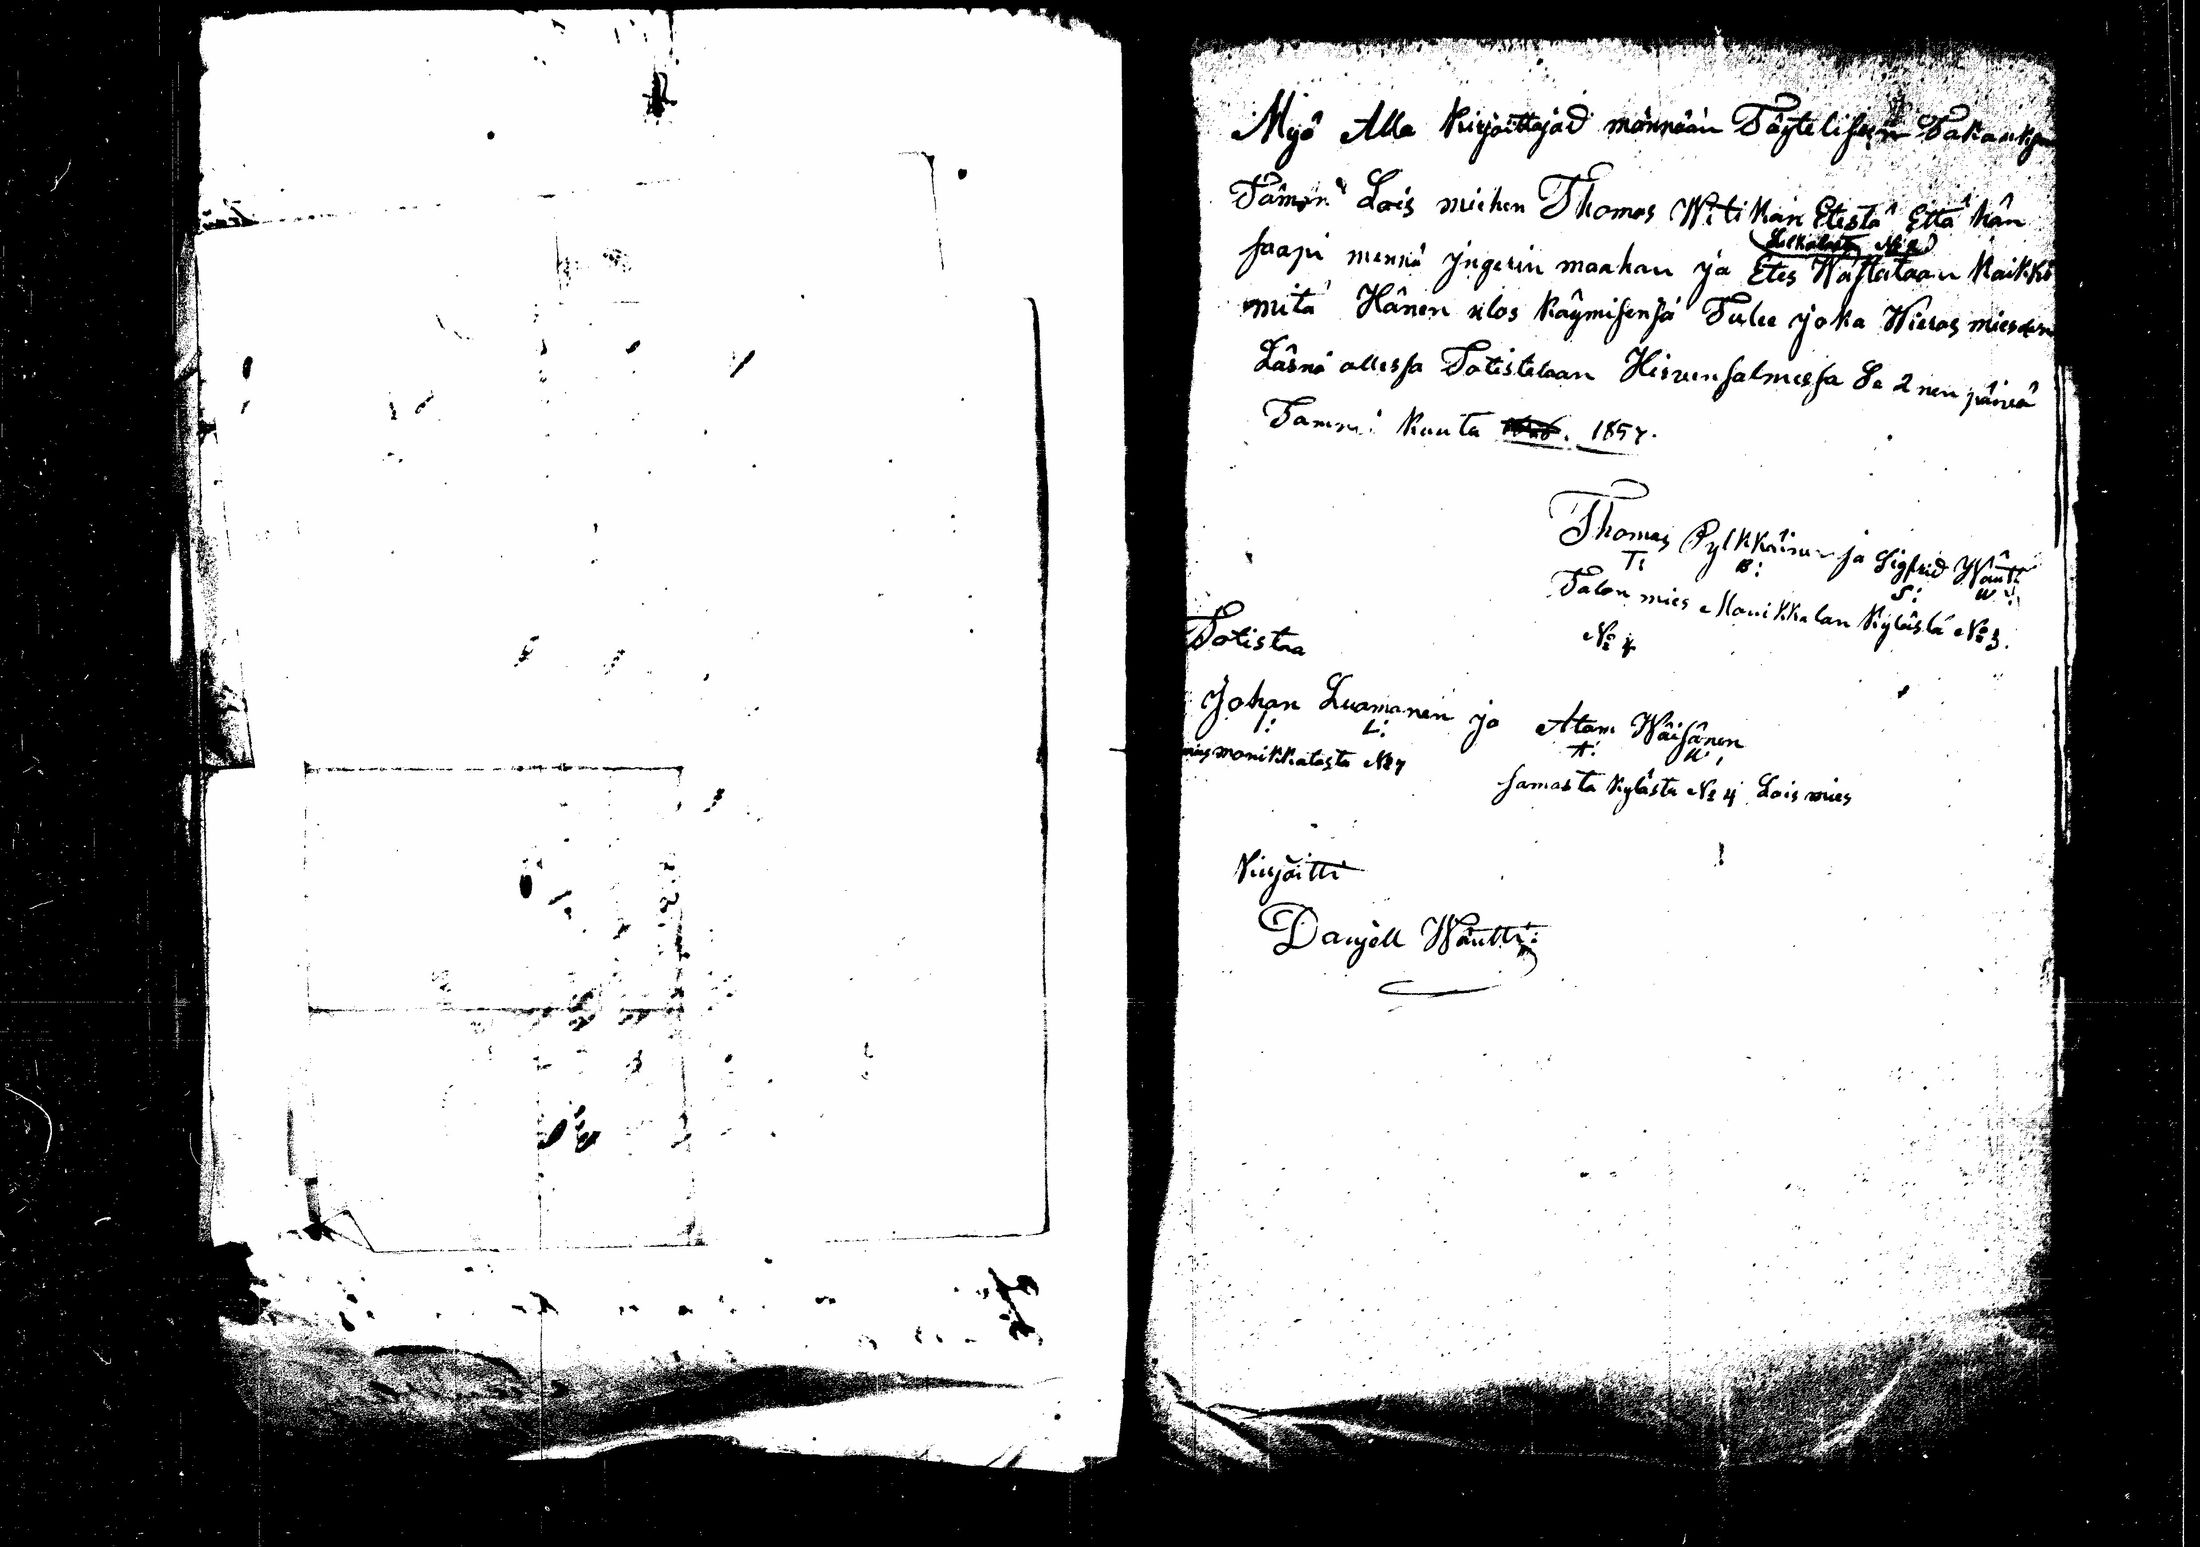 Myö Alla Kirjoittajad männään Täytelisseen Takaukse
Tämän Lois miehen Thomas Witikän Etestä Että hän
No 2
saapi mennä yngerin maahan ja Etes Wastataan Kaikki
mitä Hänen ulos Käymisensä Tulee joka Wieras miesden
Läsnä ollessa Totistetaan Hirvensalmessa Se 2nen päivä
Tammi Kuuta 1857.
Thomas Pylkkäinen ja Sigfrid Wäntti
T: P: S: W:
Talon mies Monikkalan Kylästä No 3.
No 4
Totistaa
Johan Luomanen ja Atam Wäisänen
J: L: A: W:
mies monikkalasta No 7
samasta Kylästä No 4 Lois mies
Kirjoitti
Danjell Wäntti: